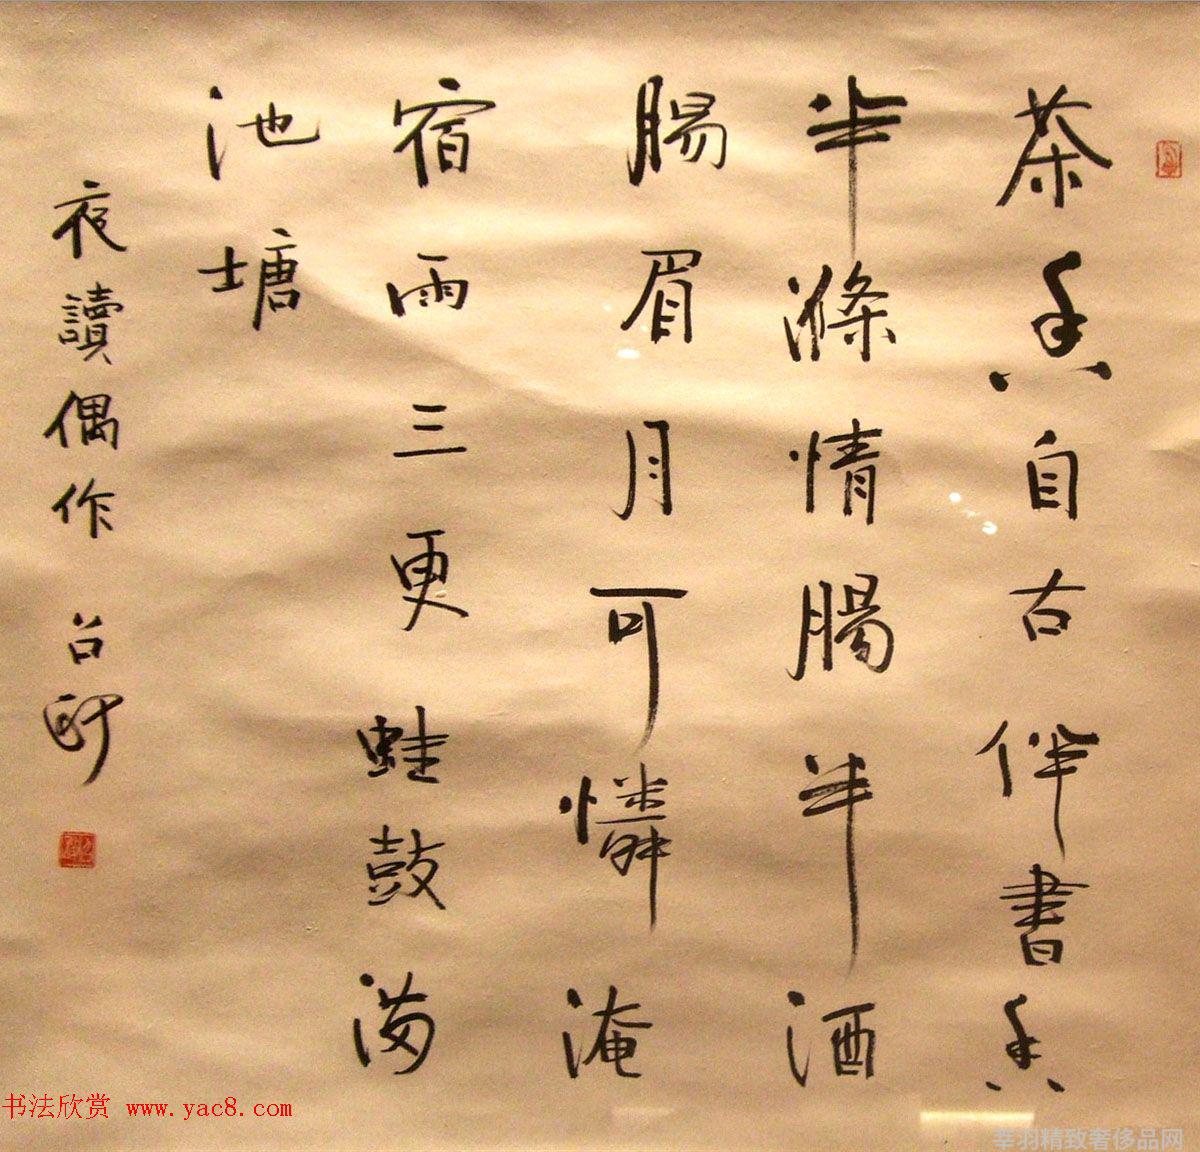 茶香自古伴書香
半滌情腸半酒
腸眉月可憐淹
宿雨三更蛙鼓满
池塘
夜讀偶作
书法欣赏 www.yac8.com
莘羽精致奢侈品网